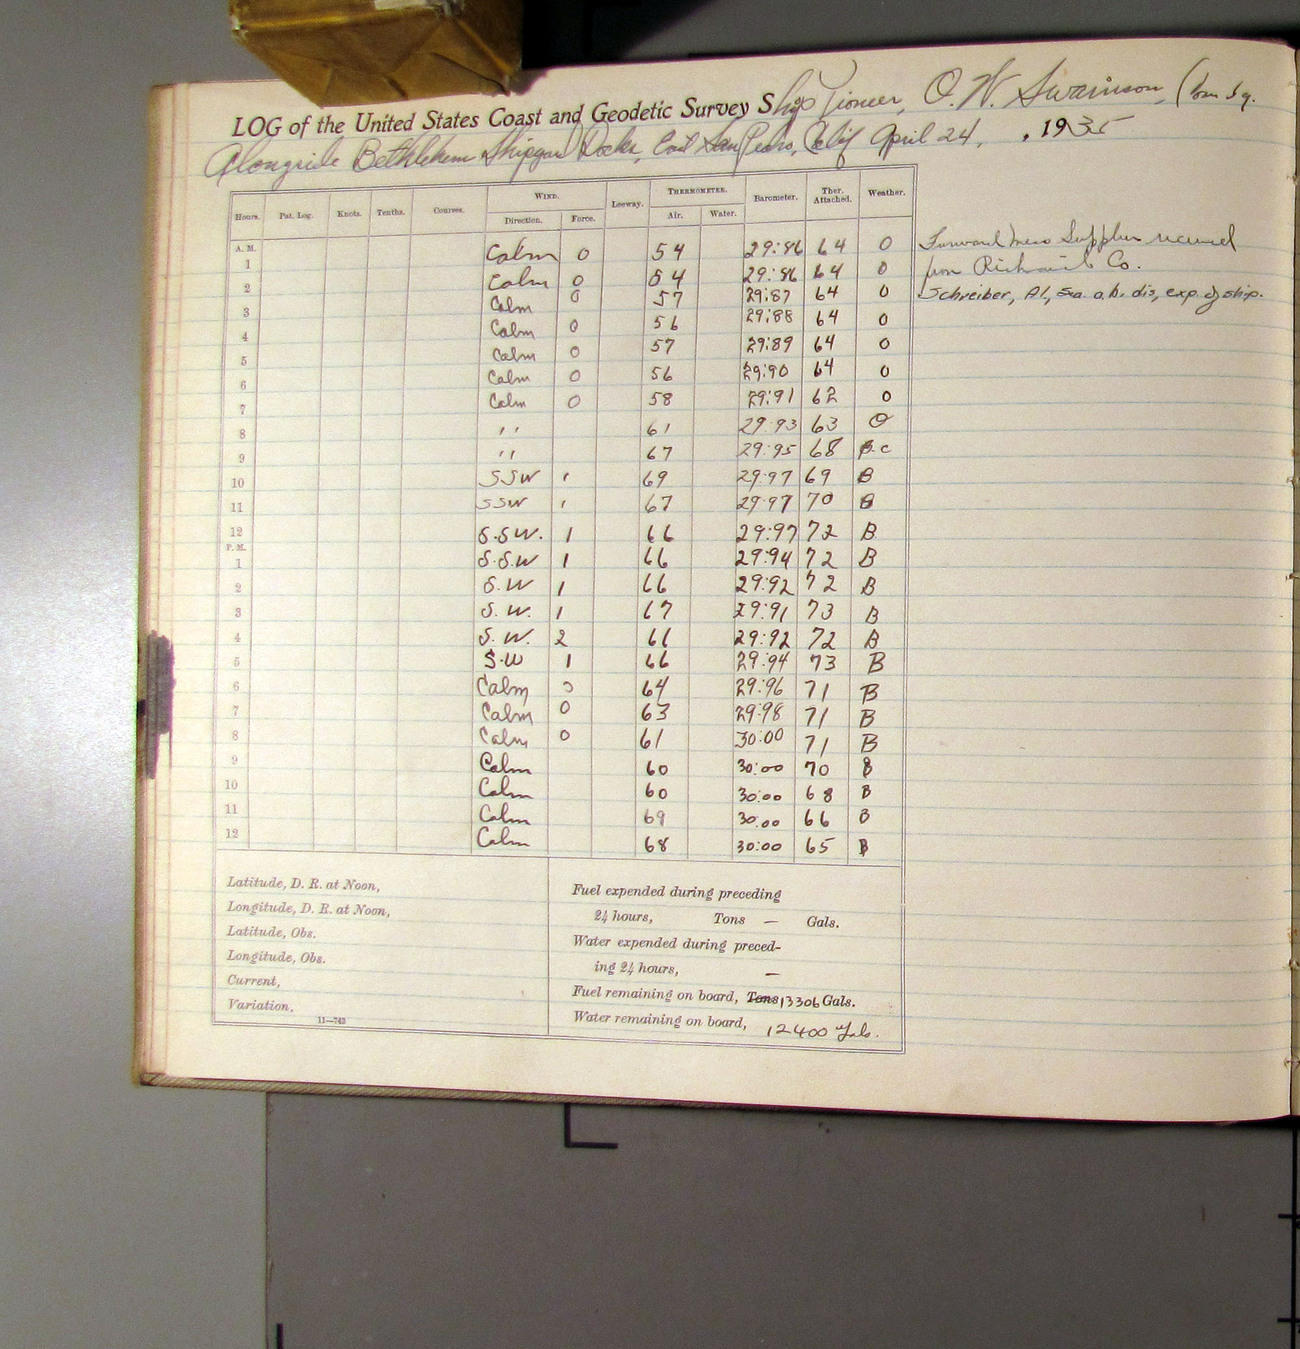 LOG of the United States Coast and Geodetic Survey Ship Pioneer, O. W. Swainson, Com'd'g.
Alongside Bethlehem Shipyard Docks, East San Pedro, Calif April 24, , 1935
Hours. Pat. Log. Knots. Tenths. Courses. WIND. Direction. Force. Leeway. THERMOMETER. Air. Water. Barometer. Ther. Attached. Weather.
A. M.
1 Calm 0 54 29:86 64 0 Forward Mess Supplies received
2 Calm 0 54 29:86 64 0 from Co.
3 Calm 0 57 29:87 64 0 Schreiber, Al, Sea. a.b. dis, exp. of ship.
4 Calm 0 56 29:88 64 0
5 Calm 0 57 29:89 64 0
6 Calm 0 56 29:90 64 0
7 Calm 0 58 29:91 62 0
8 " 61 29:93 63 O
9 " 67 29:95 68 B.c
10 SSW 1 69 29:97 69 B
11 SSW 1 67 29:97 70 B
12 S.SW. 1 66 29:97 72 B
P. M.
1 S.S.W 1 66 29:94 72 B
2 S.W 1 66 29:92 72 B
3 S.W. 1 67 29:91 73 B
4 S.W. 2 66 29:92 72 B
5 S.W 1 66 29:94 73 B
6 Calm 0 64 29:96 71 B
7 Calm 0 63 29:98 71 B
8 Calm 0 61 30:00 71 B
9 Calm 60 30:00 70 B
10 Calm 60 30:00 68 B
11 Calm 69 30:00 66 B
12 Calm 68 30:00 65 B
Latitude, D. R. at Noon,
Longitude, D. R. at Noon,
Latitude, Obs.
Longitude, Obs.
Current,
Variation,
11—743
Fuel expended during preceding
24 hours, Tons — Gals.
Water expended during preced-
ing 24 hours, —
Fuel remaining on board, Tons 13306 Gals.
Water remaining on board, 12400 Gals.